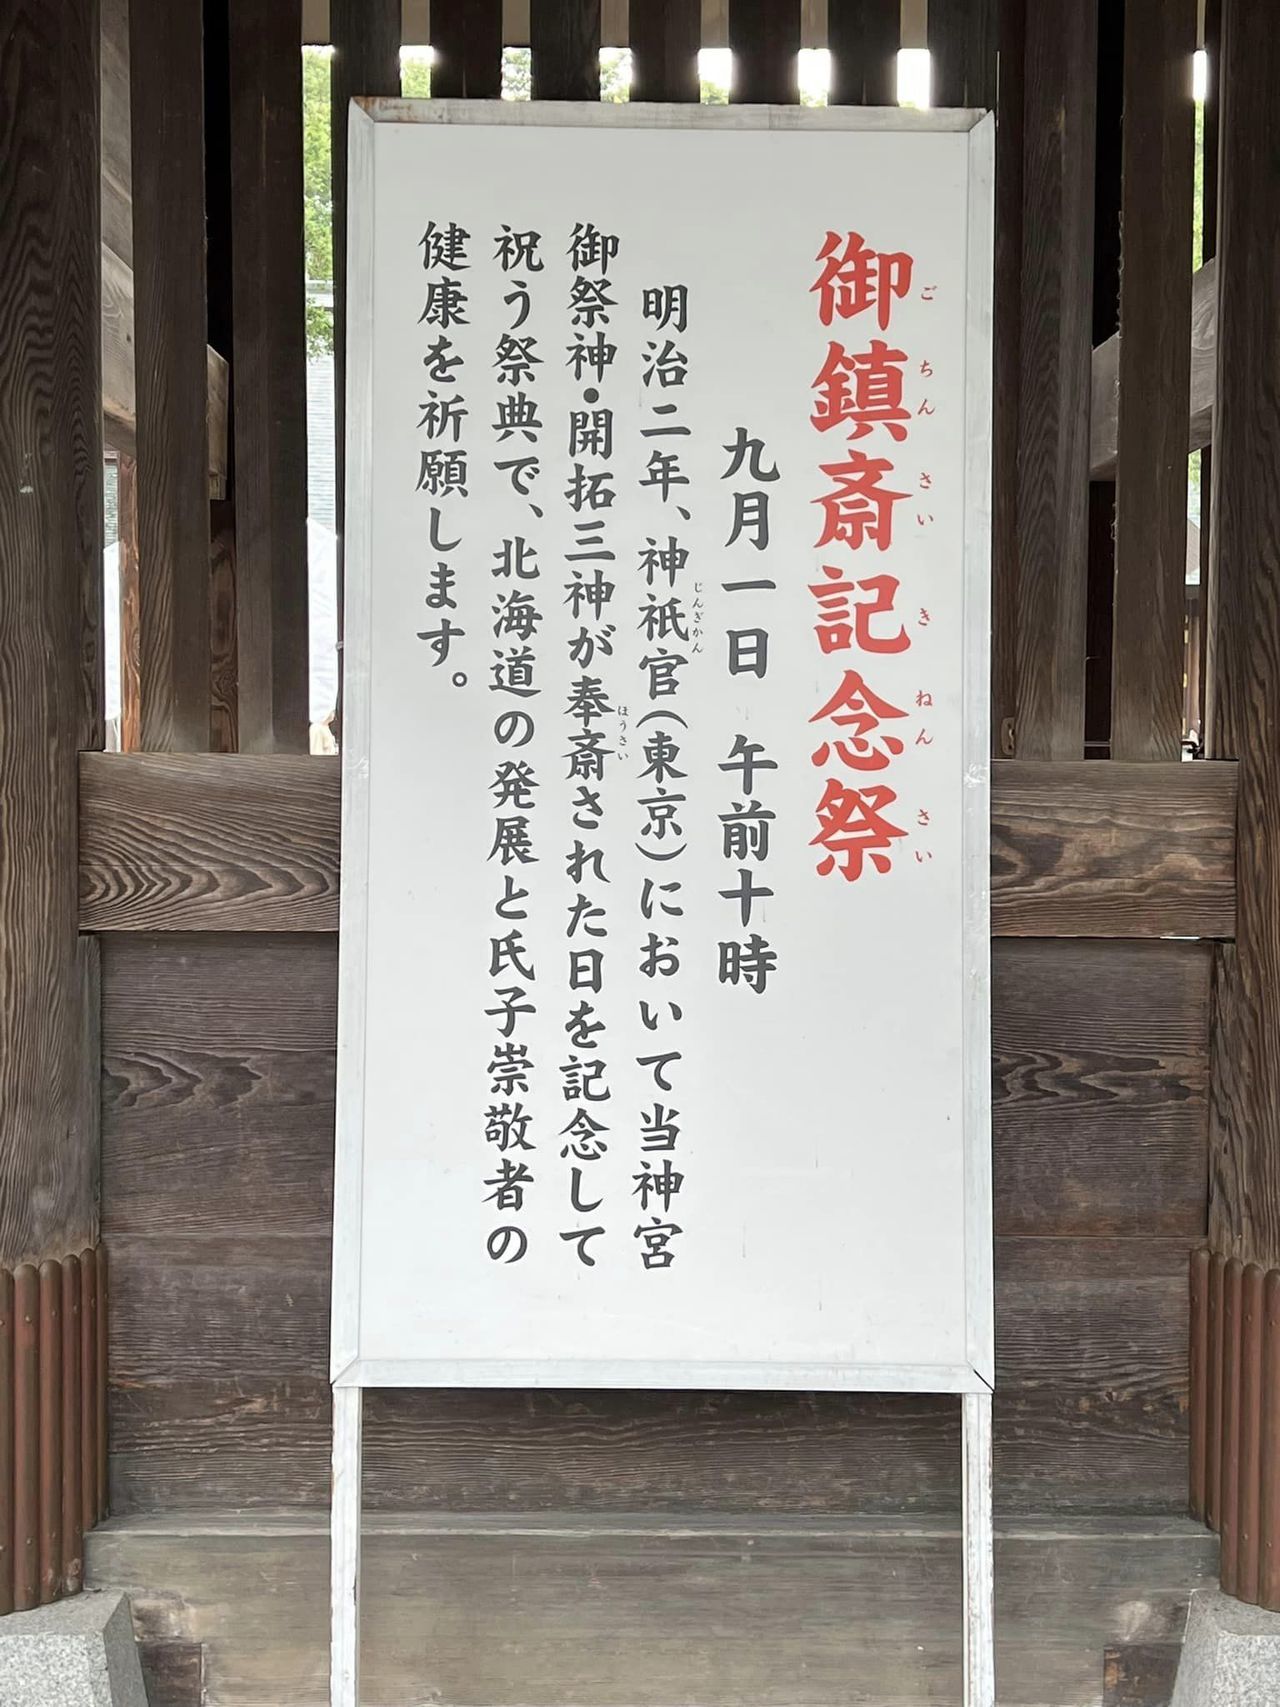 御鎮斎記念祭
ごちんさいきねんさい
九月一日 午前十時
明治二年、神祇官(東京)において当神宮
じんぎかん
御祭神・開拓三神が奉斎された日を記念して
ほうさい
祝う祭典で、北海道の発展と氏子崇敬者の
健康を祈願します。